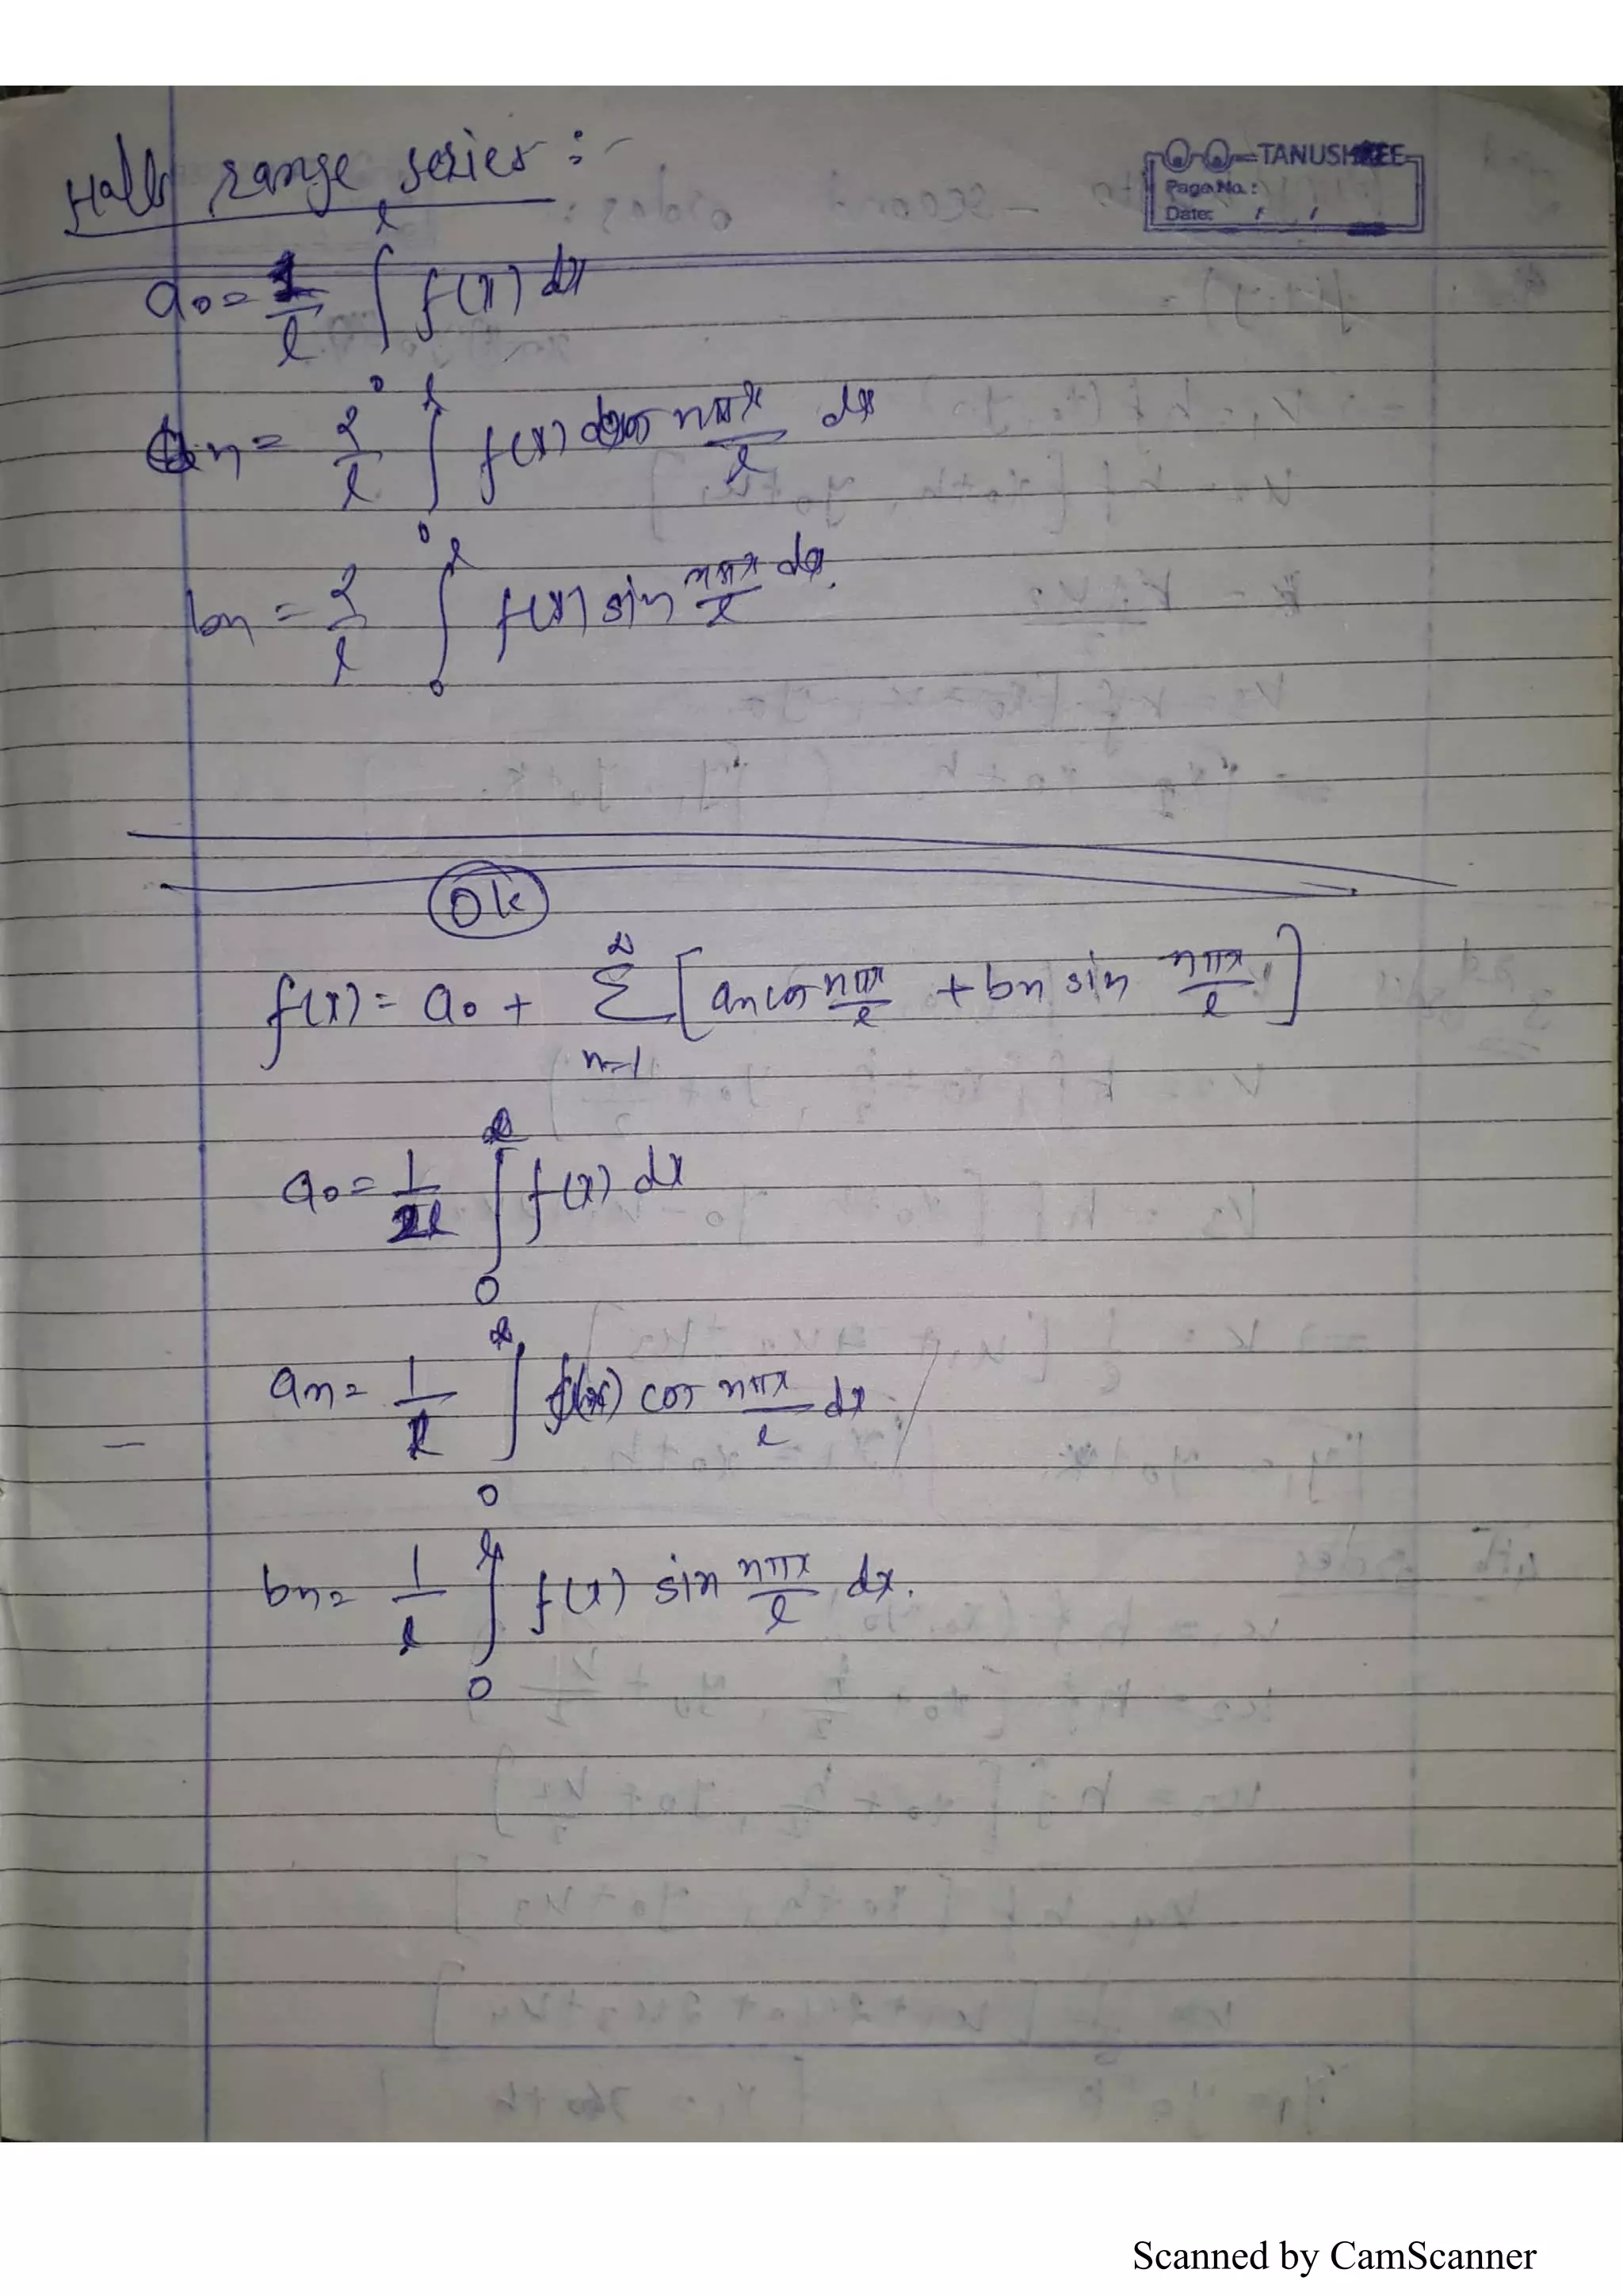 Half range series :-
TANUSHREE
Page No.:
Date: / /
a0 = 1/l ∫_0^l f(x) dx
an = 2/l ∫_0^l f(x) cos nπx/l dx
bn = 2/l ∫_0^l f(x) sin nπx/l dx.
Ok
f(x) = a0 + Σ_{n=1}^∞ [an cos nπx/l + bn sin nπx/l]
a0 = 1/2l ∫_0 f(x) dx
an = 1/l ∫_0 f(x) cos nπx/l dx
bn = 1/l ∫_0 f(x) sin nπx/l dx.
Scanned by CamScanner